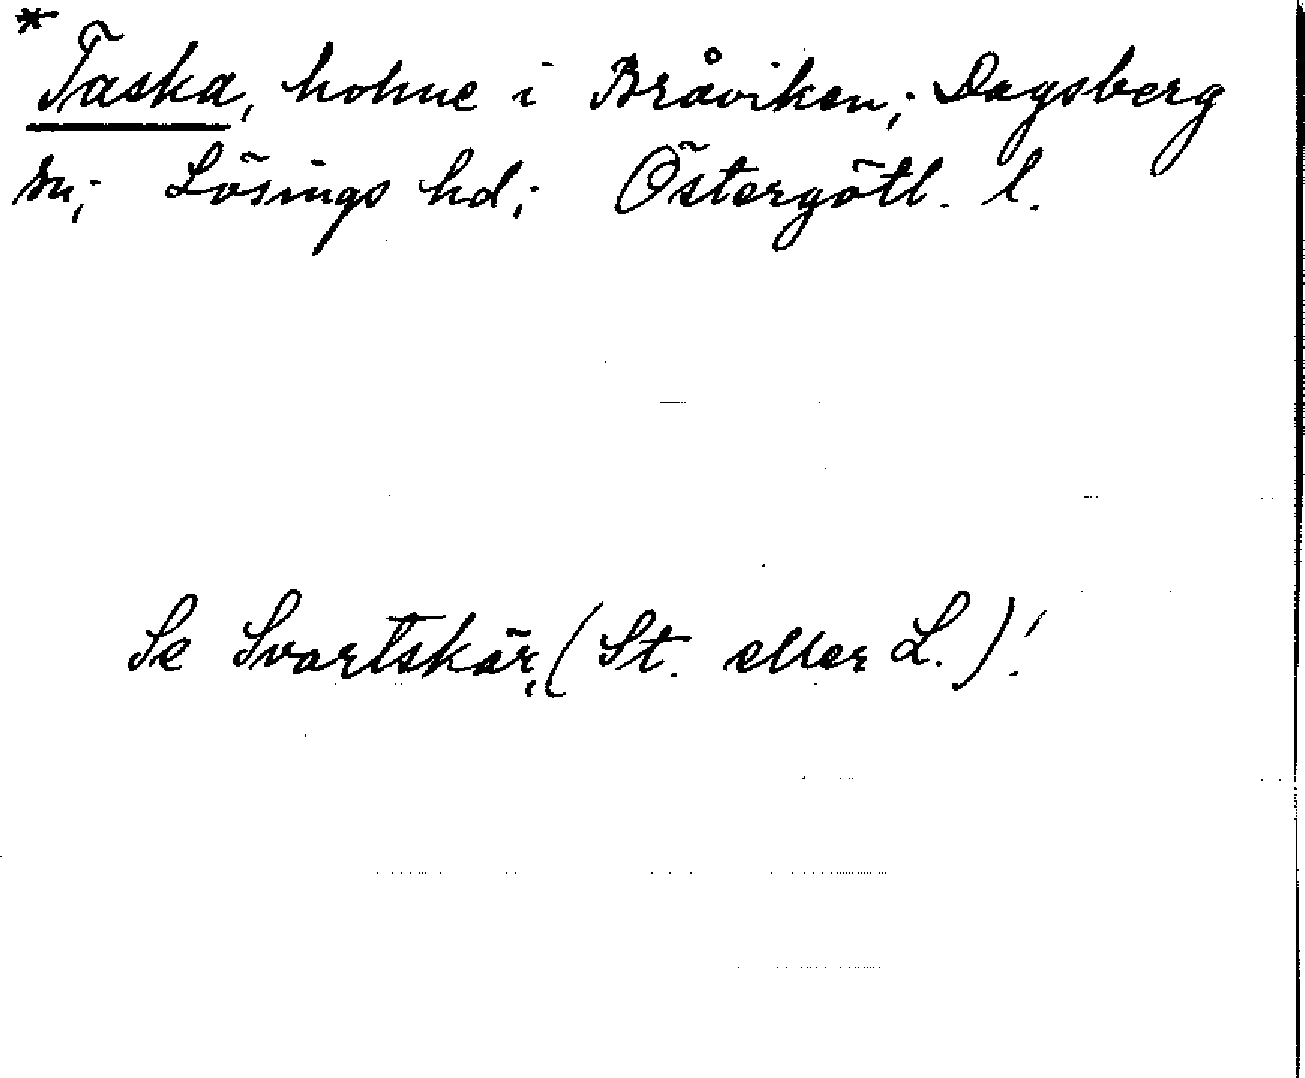 *Taska, holme i Bråviken; Dagsberg
sn; Lösings hd; Östergötl. l.
Se Svartskär, (St. eller L.)!